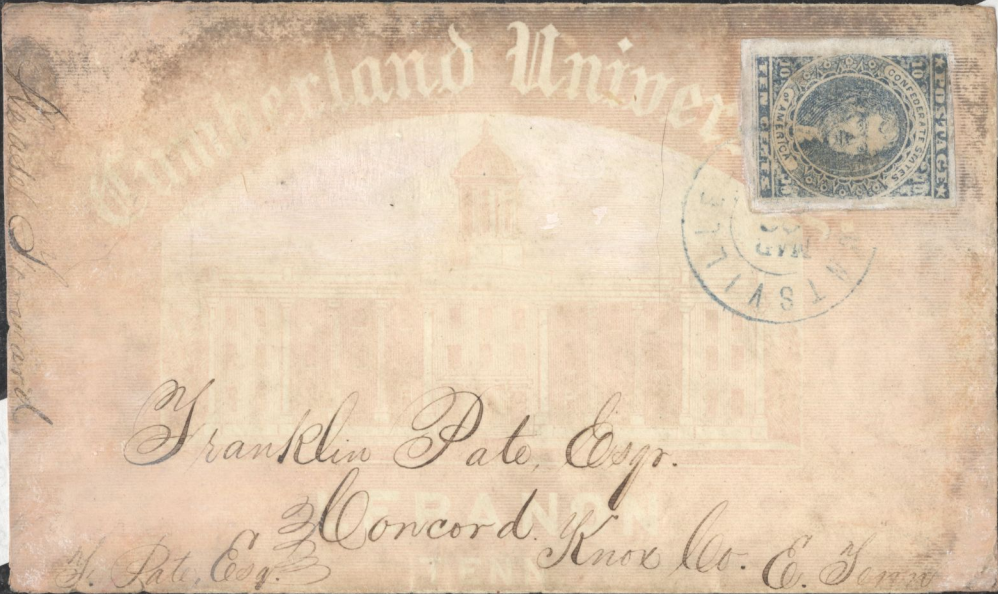 Cumberland Univer
CONFEDERATE STATES
OF AMERICA
POSTAGE
TEN CENTS
10 10
10 10
NTSVILLE
MAR
Franklin Pate, Esqr.
LEBANON
Concord.
Knox Co. E. Tenn
TENN
F. Pate, Esq.